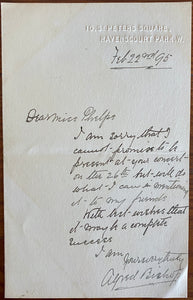 10. ST PETERS SQUARE,
RAVENSCOURT PARK. W.
Feb 22nd 95
Dear Miss Phelps
I am sorry that I
cannot promise to be
present at your concert
on the 26th but will do
what I can & mention
it to my friends
With best wishes that
it may be a complete
success
I am
Yours very truly
Alfred Bishop